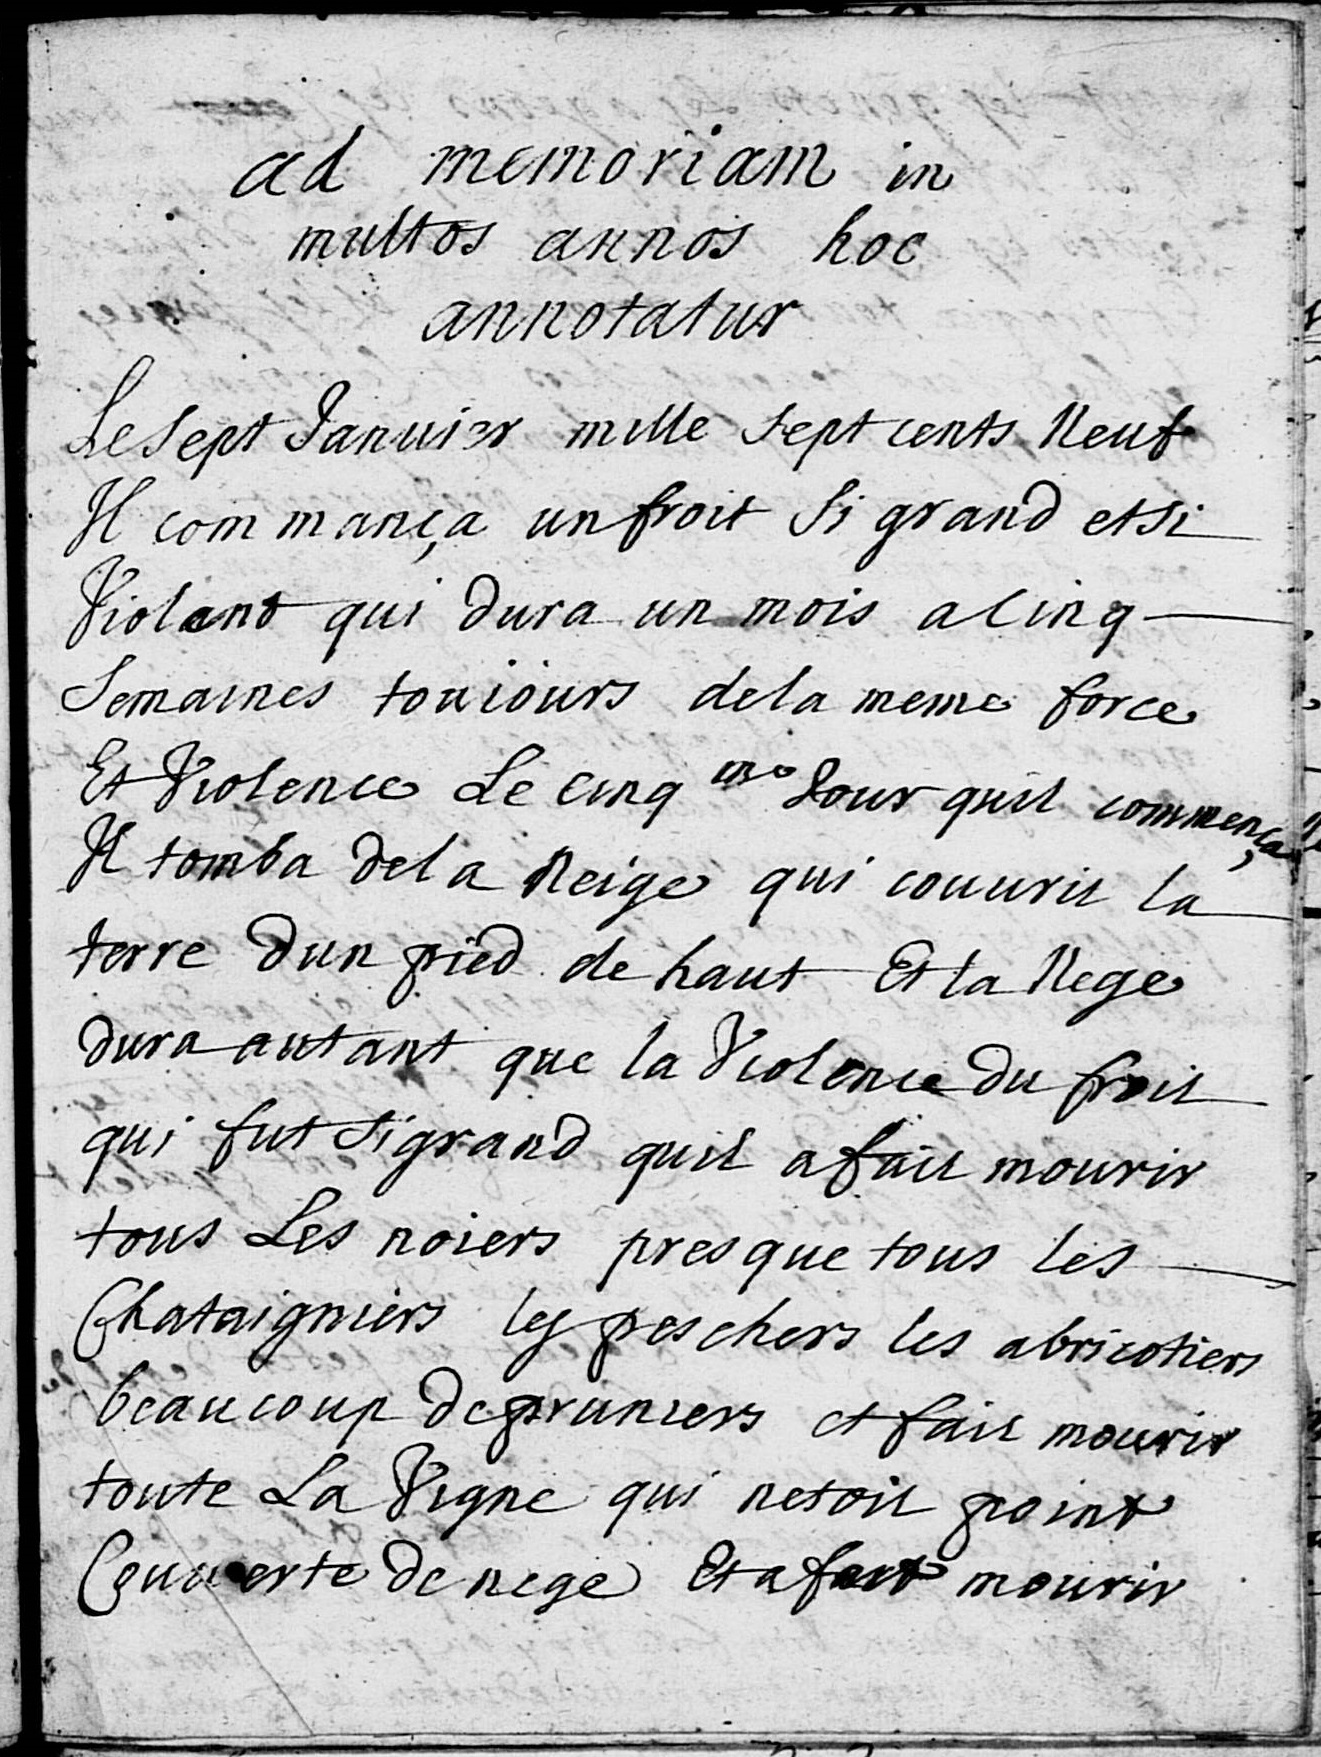 ad memoriam in
multos annos hoc
annotatur
Le sept Januier mille sept cents Neuf
Il commança un froit si grand et si
Violant qui dura un mois a cinq
Semaines touiours de la meme force
Et Violence Le cinq me Jour quil commença
Il tomba de la Neige qui couurit la
terre dun pied de haut Et la Nege
dura autant que la Violence du froit
qui fut si grand quil a fait mourir
tous Les noiers presque tous les
Chataigniers les peschers les abricotiers
beaucoup de pruniers et fait mourir
toute La Vigne qui netoit point
Couuerte de nege Et a fait mourir